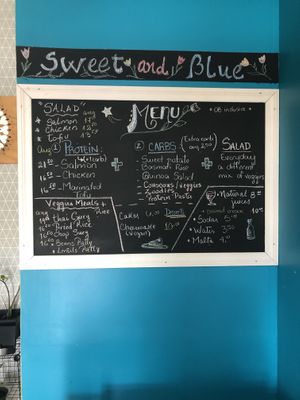 Sweet and Blue
"SALAD" awg
Salmon
Chicken
Tofu
MENU
OB inclusive
Awg ① PROTEIN
(+carb)
Salmon
16.50 - Chicken
16.50 - Marinated
Tofu
+
② CARBS
(Extra carbs)
awg 2.50
Sweet potato
Basmati Rice
Quinoa Salad
Couscous/veggies
Protein Pasta
+
SALAD
Everyday
a different
mix of veggies
Veggie Meals +
Rice
awg
Thai Curry
Fried Rice
Chop Suey
Beans Patty
Lentils Patty
Cakes
Cheesecake
(vegan)
Natural 8=
juices
Sodas 5=
Water 3.50
Malta